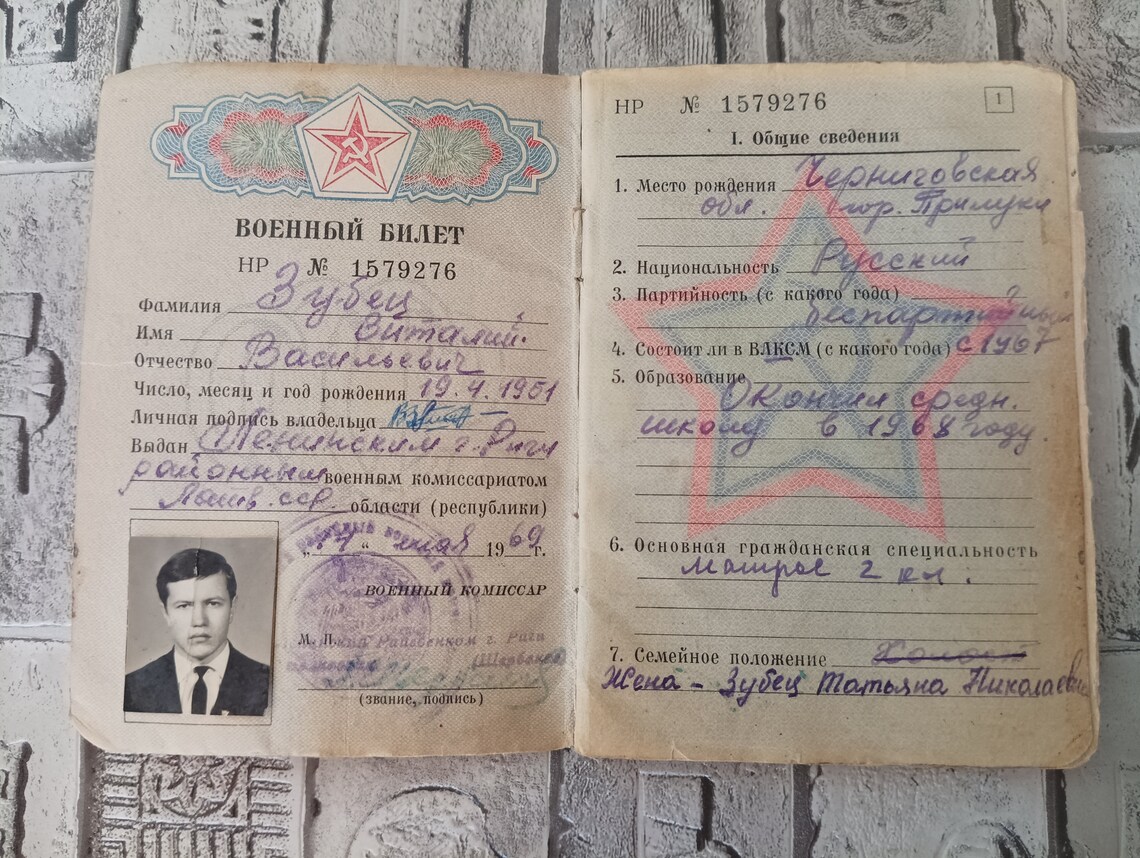 ВОЕННЫЙ БИЛЕТ
НР № 1579276
Фамилия Зубец
Имя Виталий.
Отчество Васильевич
Число, месяц и год рождения 19.4.1951
Личная подпись владельца
Выдан Ленинским г. Риги
районным военным комиссариатом
Латв. сср. области (республики)
" 14 " мая 1969 г.
ВОЕННЫЙ КОМИССАР
М. П. Райвоенком г. Риги
(звание, подпись)
НР № 1579276
1
I. Общие сведения
1. Место рождения Черниговская
обл. гор. Прилуки
2. Национальность Русский
3. Партийность (с какого года)
беспартийный
4. Состоит ли в ВЛКСМ (с какого года) с 1967
5. Образование
Окончил средн.
школу в 1968 году.
6. Основная гражданская специальность
матрос 2 кл.
7. Семейное положение Холост
Жена - Зубец Татьяна Николаевна